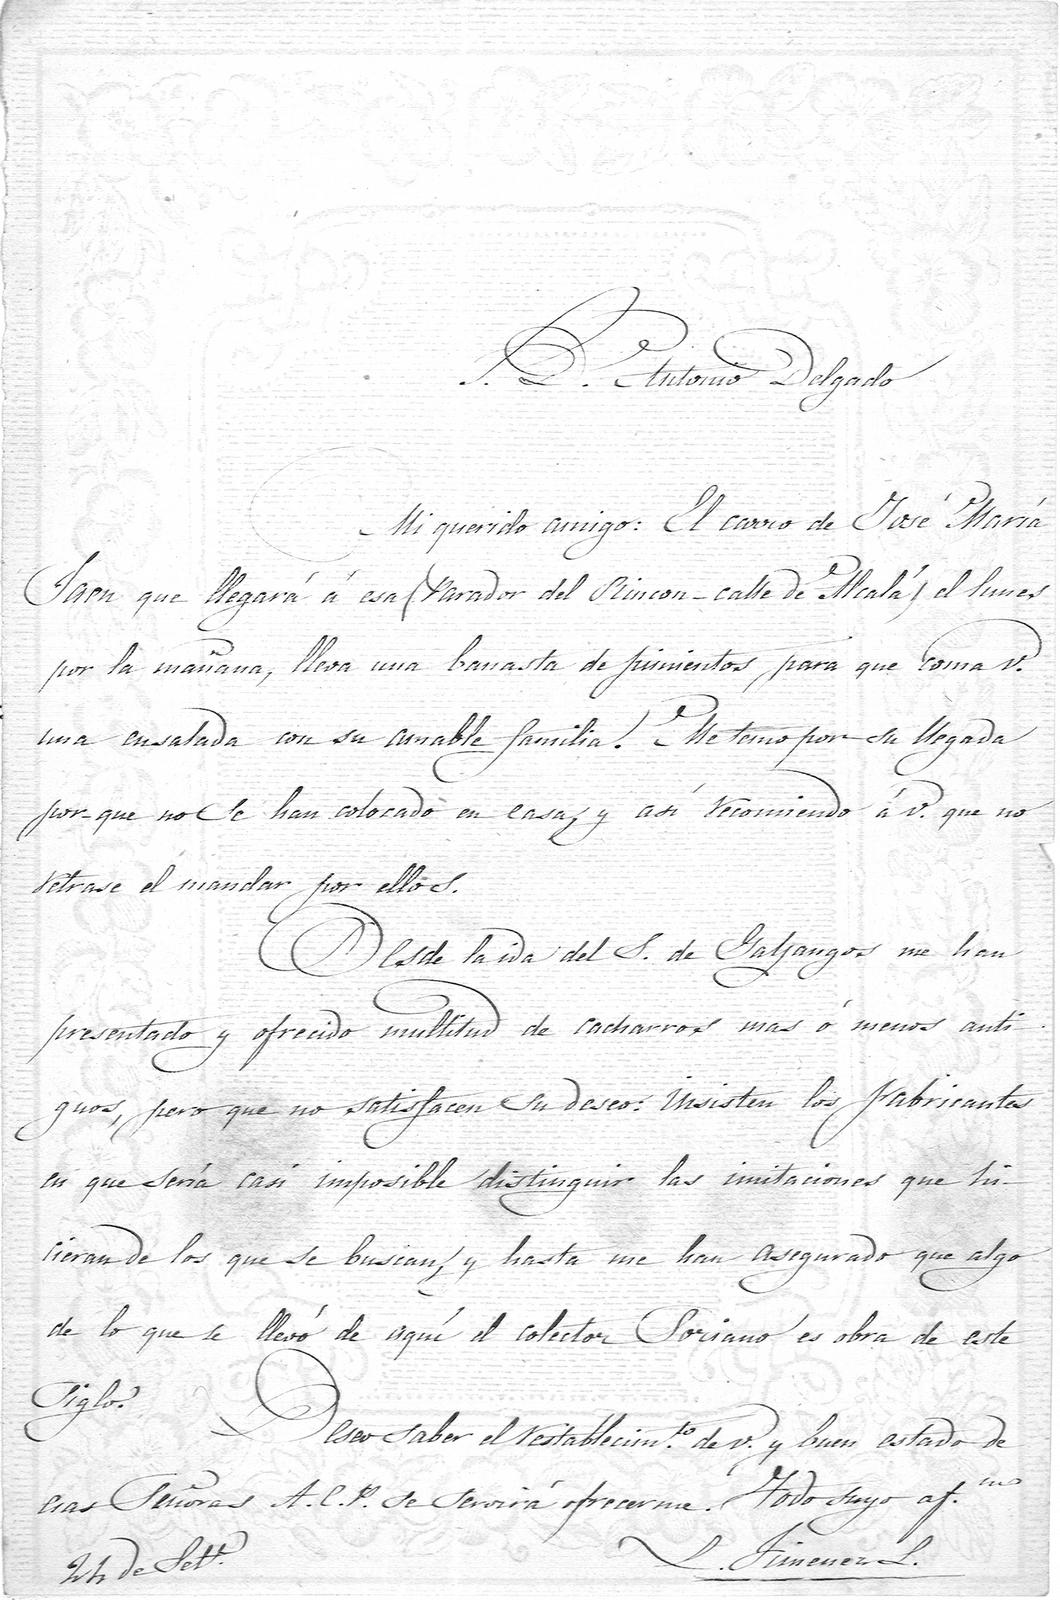 S. D. Antonio Delgado
Mi querido amigo: El carro de José María
Jaen que llegará á esa (Parador del Rincon - calle de Alcalá) el lunes
por la mañana, lleva una banasta de pimientos, para que coma V.
una ensalada con su amable familia. Me temo por su llegada
por-que no se han colocado en casa, y así recomiendo á V. que no
retrase el mandar por ellos.
Desde la ida del S. de Galjangos me han
presentado y ofrecido multitud de cacharros mas ó menos anti-
guos, pero que no satisfacen su deseo: insisten los fabricantes
en que sería casi imposible distinguir las imitaciones que hi-
cieran de los que se buscan, y hasta me han asegurado que algo
de lo que se llevó de aquí el colector Soriano es obra de este
siglo.
Deseo saber el restablecim.to de V. y buen estado de
esas Señoras A. L. P. se servirá ofrecerme. Todo suyo af.mo
24 de Set.e
L. Jimenez L.